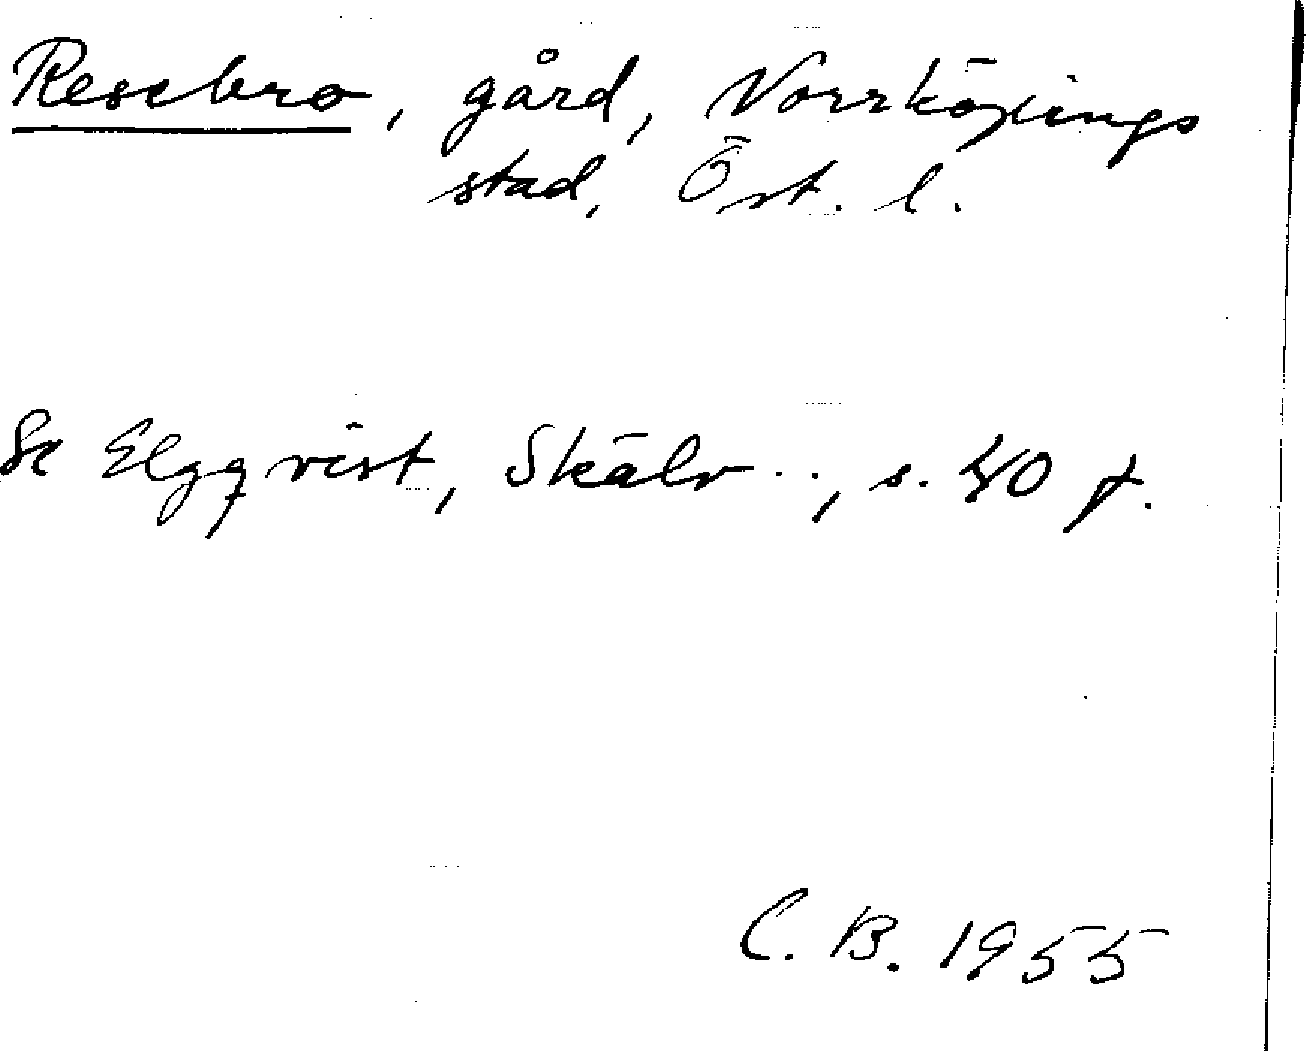 Resebro, gård, Norrköpings
stad, Öst. l.
Se Elgqvist, Skälv.., s. 40 f.
C. B. 1955